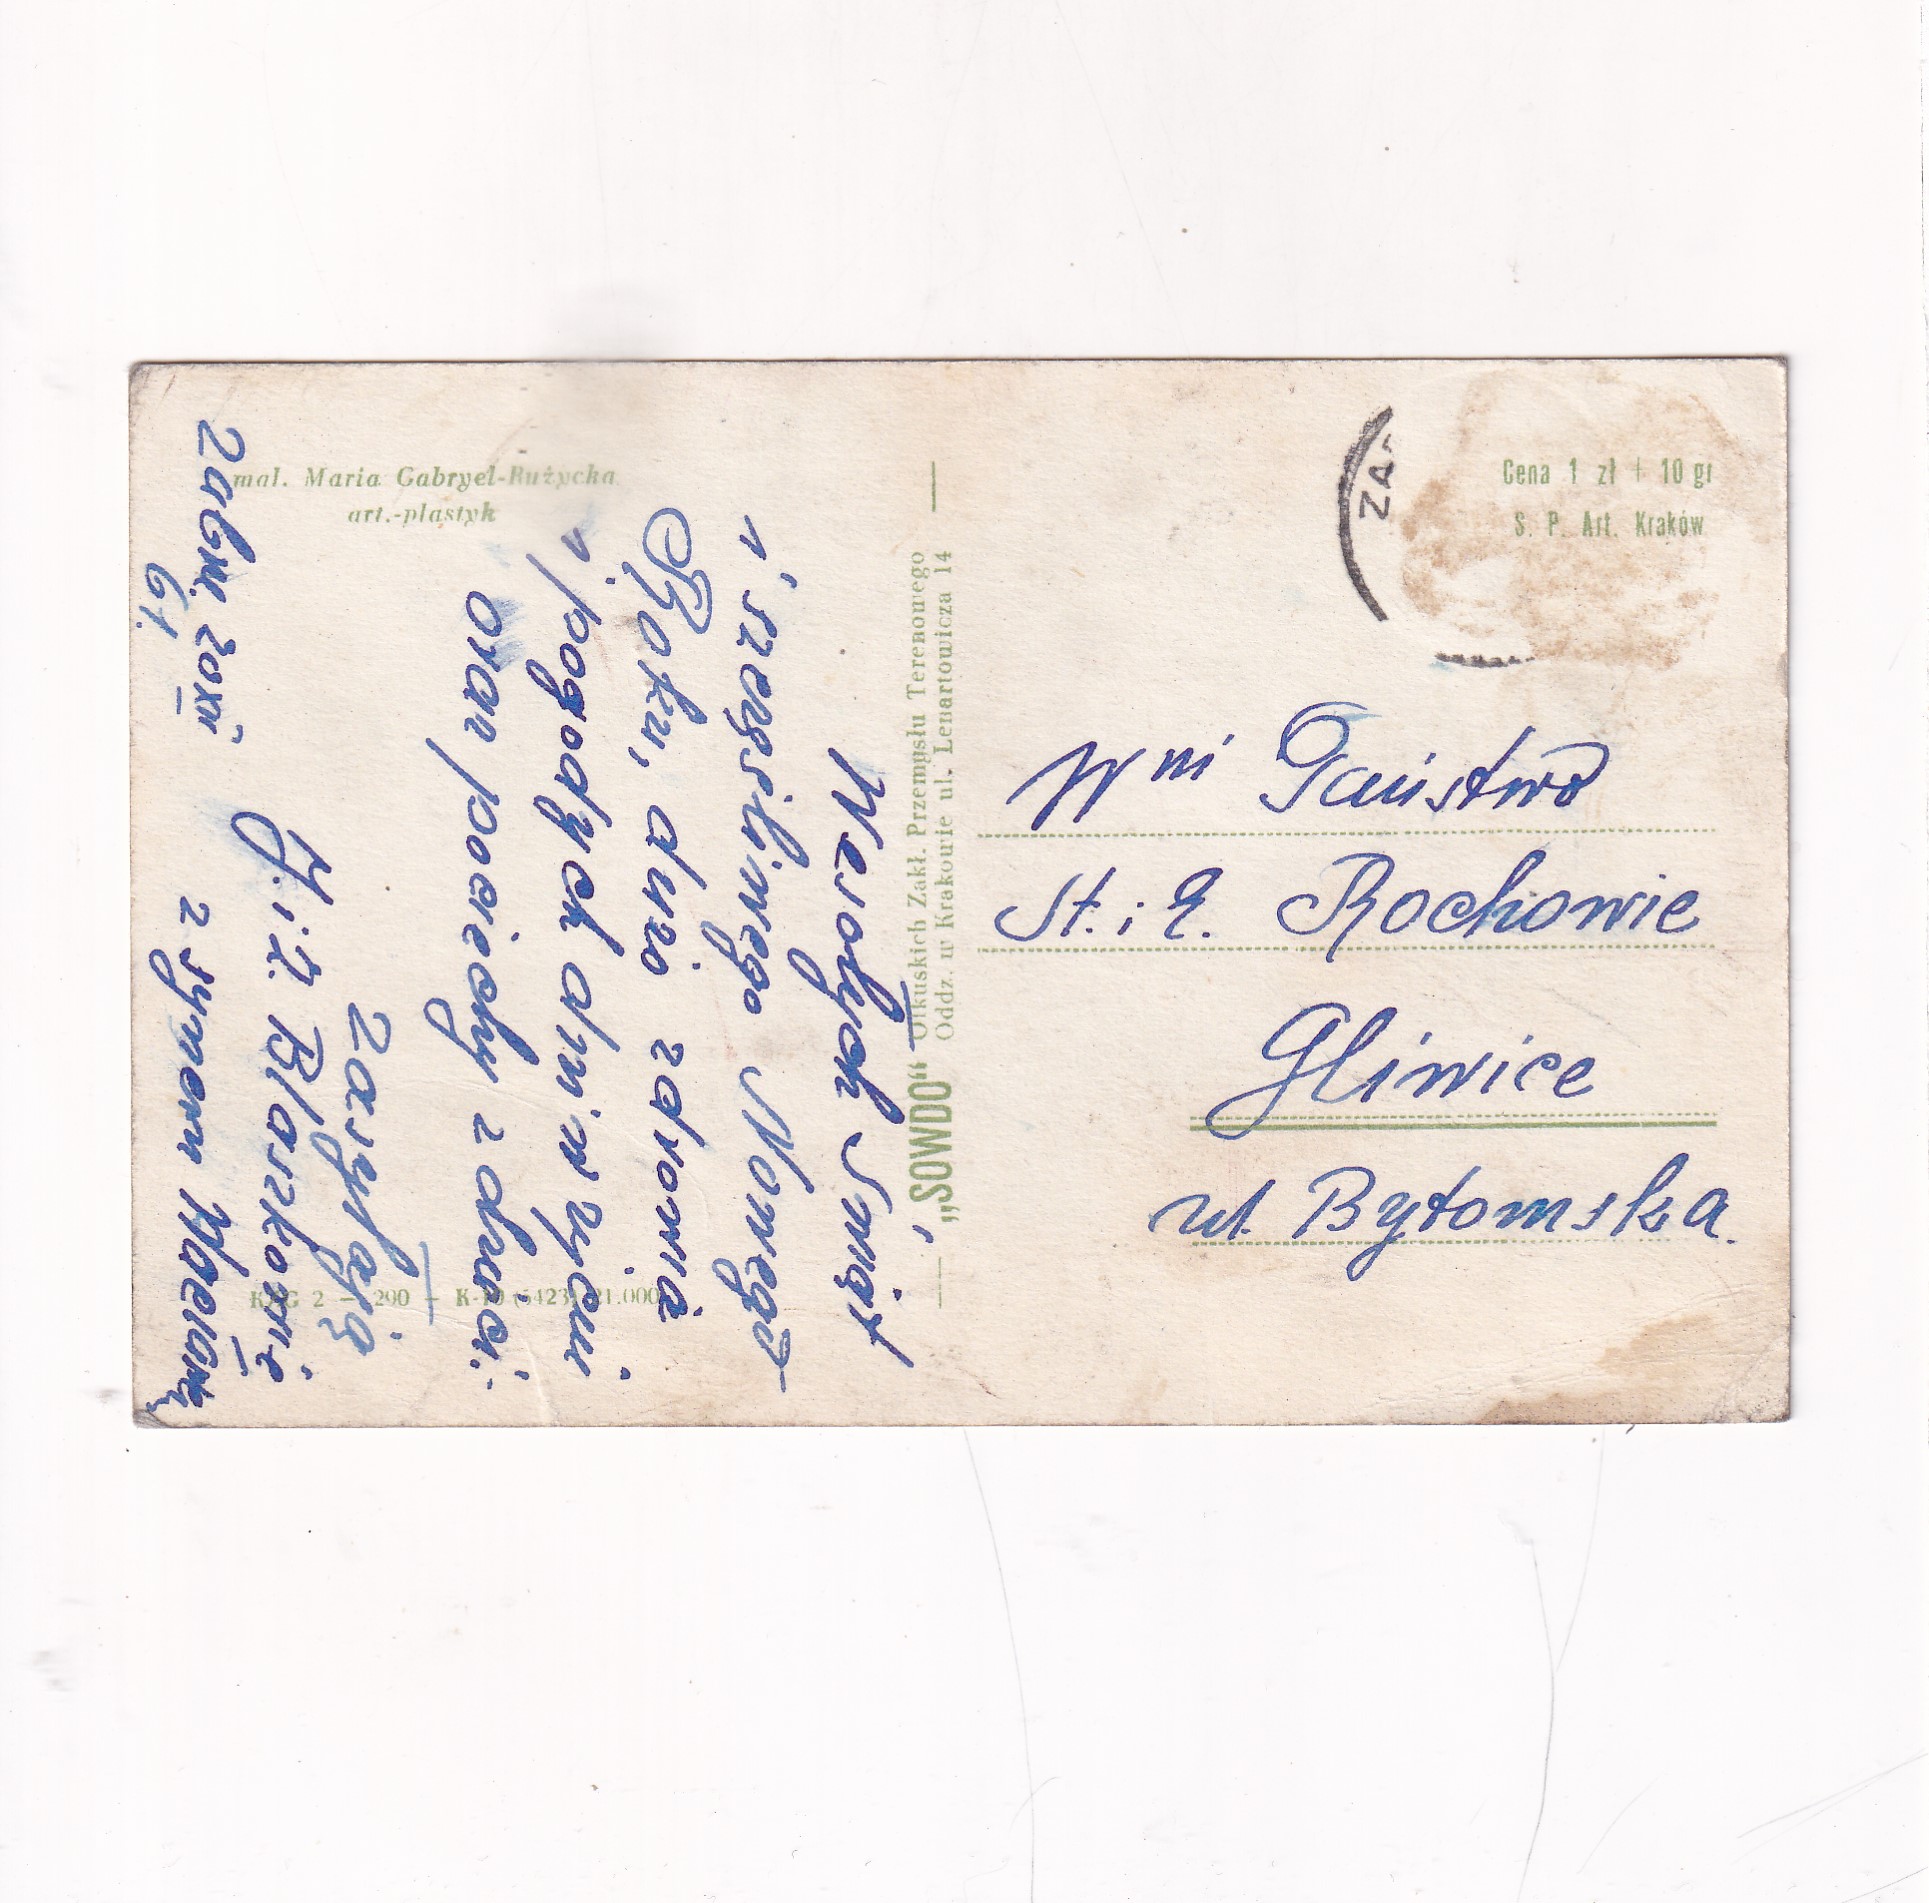 mal. Maria Gabryel-Rużycka
art.-plastyk
Wesołych Świąt
i szczęśliwego Nowego
Roku, dużo zdrowia
i pogodych dni w życiu
oraz pociechy z dzieci.
Zasyłają
J. i Z. Błaszkowie
z synem Maciang
Zabrze 20 XII
61.
„SOWDO“ Olkuskich Zakł. Przemysłu Terenowego
Oddz. w Krakowie ul. Lenartowicza 14
KZG 2 — 290 — K-10 (5423) 21.000
Cena 1 zł + 10 gr
S. P. Art. Kraków
ZA
Wni Państwo
St. i E. Rochowie
Gliwice
ul. Bytomska.